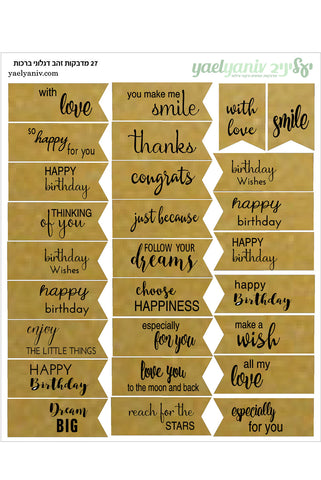 27 מדבקות זהב דגלוני ברכות
yaelyaniv.com
יעליניב
yaelyaniv
with
love
so
happy
for you
HAPPY
birthday
THINKING
of you
birthday
Wishes
happy
birthday
enjoy
THE LITTLE THINGS
HAPPY
Birthday
Dream
BIG
you make me
smile
thanks
congrats
just because
FOLLOW YOUR
dreams
choose
HAPPINESS
especially
for you
love you
to the moon and back
reach for the
STARS
with
love
smile
birthday
Wishes
happy
birthday
HAPPY
birthday
happy
Birthday
make a
wish
all my
love
especially
for you